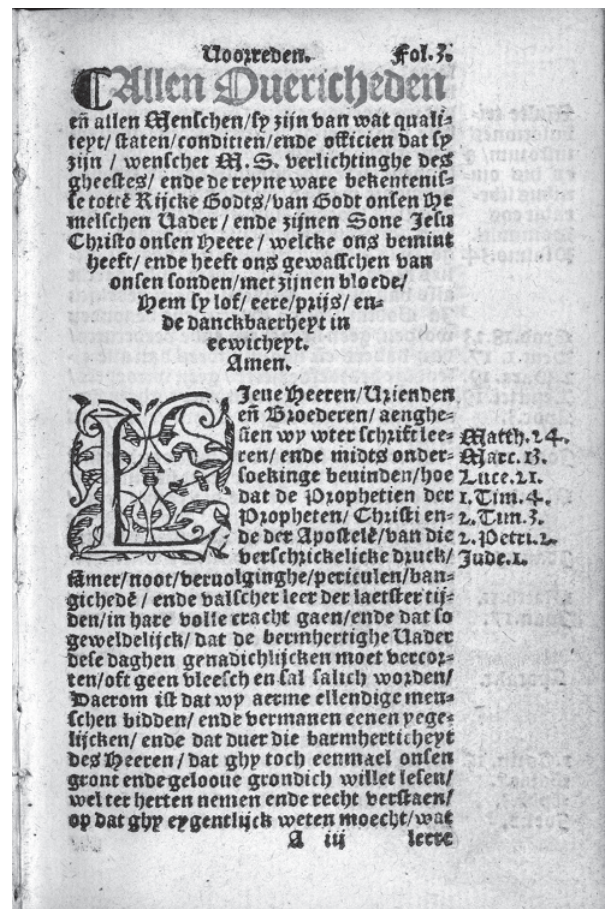 Voorreden. Fol. 3.
Allen Ouericheden
eñ allen Menschen/sy zijn van wat quali-
teyt/ staten/conditien/ende officien dat sy
zijn / wenschet M. S. verlichtinghe des
gheestes/ ende de reyne ware bekentenis-
se tottē Rijcke Godts/van Godt onsen He
melschen Vader / ende zijnen Sone Jesu
Christo onsen Heere / welcke ons bemint
heeft/ ende heeft ons gewasschen van
onsen sonden/met zijnen bloede/
Hem sy lof/ eere/prijs/ en-
de danckbaerheyt in
eewicheyt.
Amen.
LIeue Heeren/Vrienden
eñ Broederen/ aenghe-
sien wy wter schrift lee-
ren/ ende midts onder-
soekinge beuinden/hoe
dat de Prophetien der
Propheten/ Christi en-
de der Apostelē/van die
verschrickelicke druck/
iamer/noot/veruolginghe/periculen/ban-
gichedē / ende valscher leer der laetster tij-
den/in hare volle cracht gaen/ende dat so
geweldelijck/ dat de bermhertighe Vader
dese daghen genadichlijcken moet vercor-
ten/oft geen vleesch en sal salich worden/
Daerom ist dat wy aerme ellendige men-
schen bidden/ ende vermanen eenen yege-
lijcken/ ende dat duer die barmherticheyt
des Heeren / dat ghy toch eenmael onsen
gront ende gelooue grondich willet lesen/
wel ter herten nemen ende recht verstaen/
op dat ghy eygentlijck weten moecht/wat
A iij leere
Matth. 24.
Marc. 13.
Luce. 21.
1. Tim. 4.
2. Tim. 3.
2. Petri. 2.
Jude. 1.